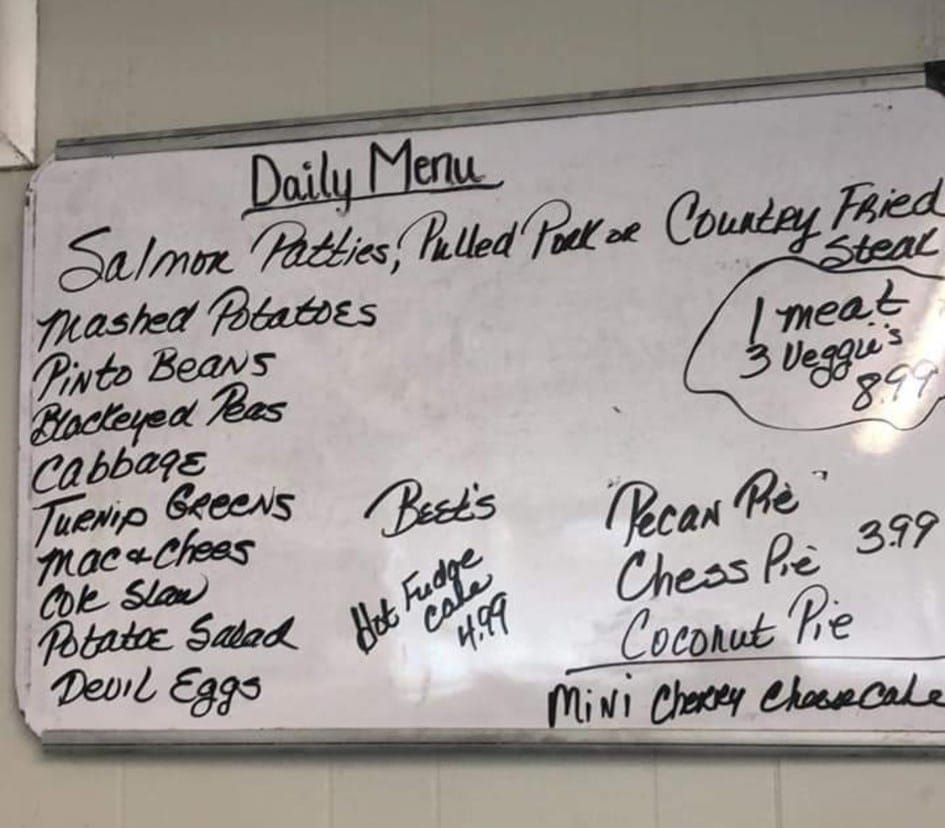 Daily Menu
Salmon Patties, Pulled Pork or Country Fried
Steak
1 meat
3 Veggie's
8.99
Mashed Potatoes
Pinto Beans
Blackeyed Peas
Cabbage
Turnip Greens
Mac & Chees
Cole Slaw
Potatoe Salad
Devil Eggs
Beet's
Hot Fudge
Cake
4.99
"Pecan Pie"
Chess Pie 3.99
Coconut Pie
Mini Cherry Cheesecake